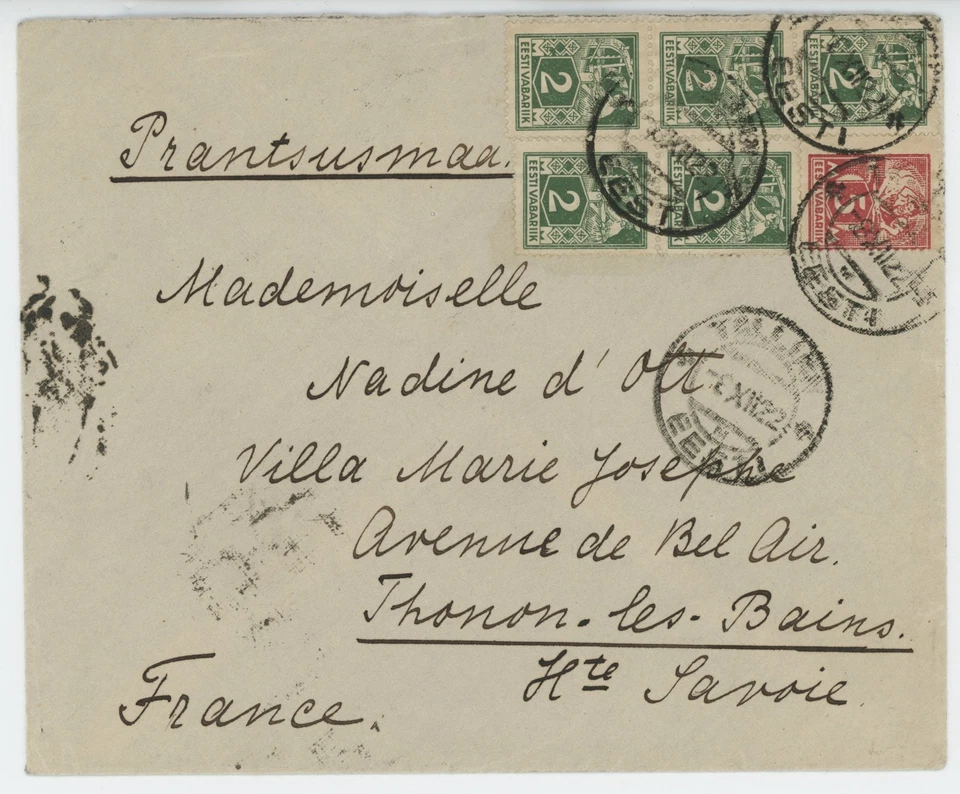 2 EESTI VABARIIK
2 EESTI VABARIIK
2 EESTI VABARIIK
2 EESTI VABARIIK
2 EESTI VABARIIK
5 EESTI VABARIIK
EESTI
EESTI
EESTI
Prantsusmaa.
Mademoiselle
Nadine d'Ott
TALLINN XII 22 EESTI
Villa Marie Josephe
Avenue de Bel Air.
Thonon-les-Bains.
Hte Savoie
France.